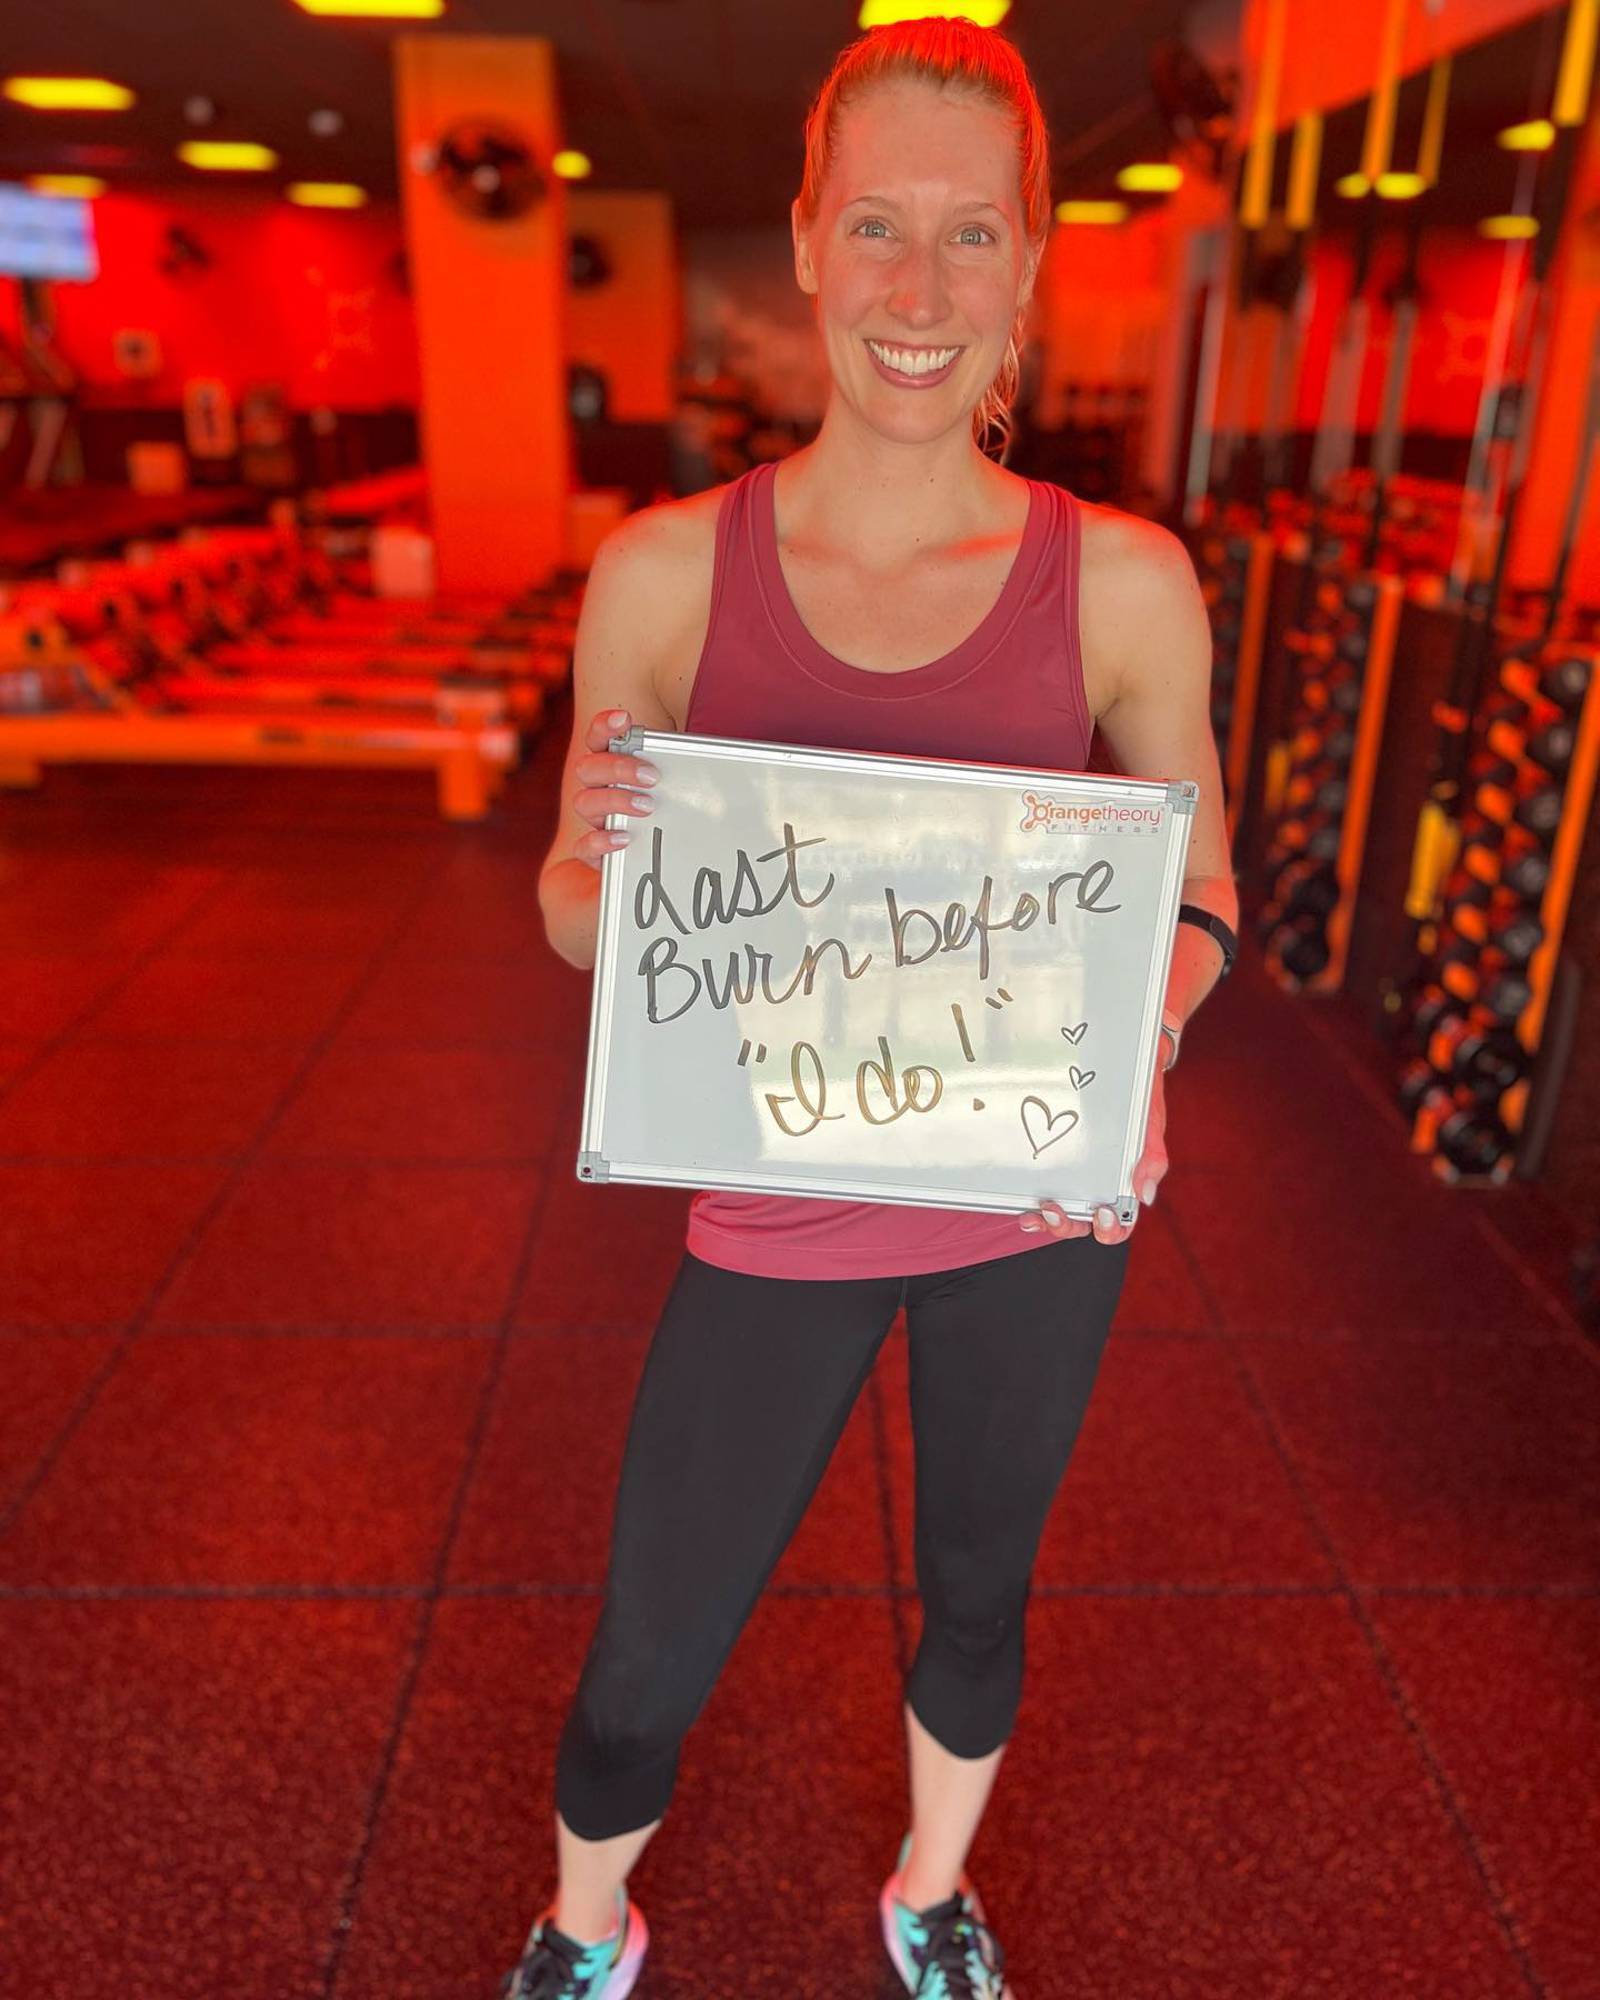 Orangetheory
FITNESS
Last
Burn before
"I do!"